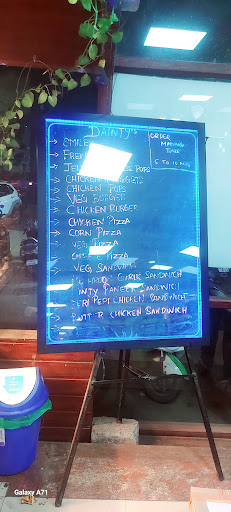 DAINTY
ORDER
MAKING
TIME
5 TO 10 MIN
SMILE
FRE
JEL POPS
CHICKEN NUGGETS
CHICKEN POPS
VEG BURGER
CHICKEN BURGER
CHICKEN PIZZA
CORN PIZZA
VEG PIZZA
PIZZA
VEG SANDWICH
GARLIC SANDWICH
PANEER SANDWICH
PERI PERI CHICKEN SANDWICH
CHICKEN SANDWICH
Galaxy A71